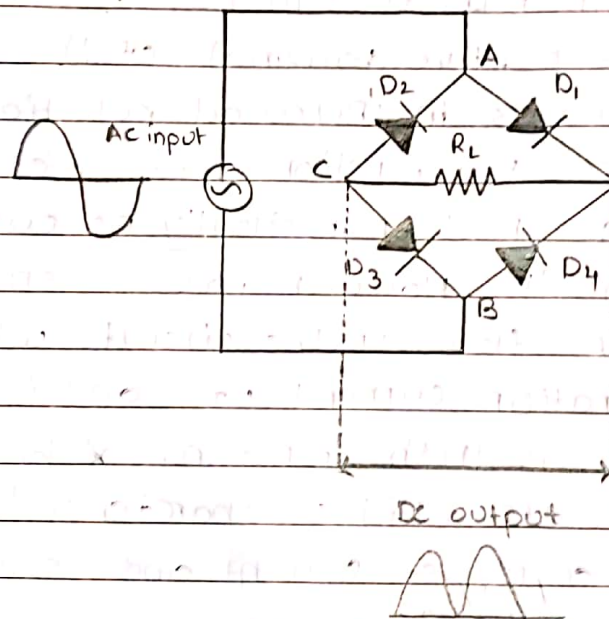 A
D2
D1
AC input
RL
C
D3
D4
B
DC output